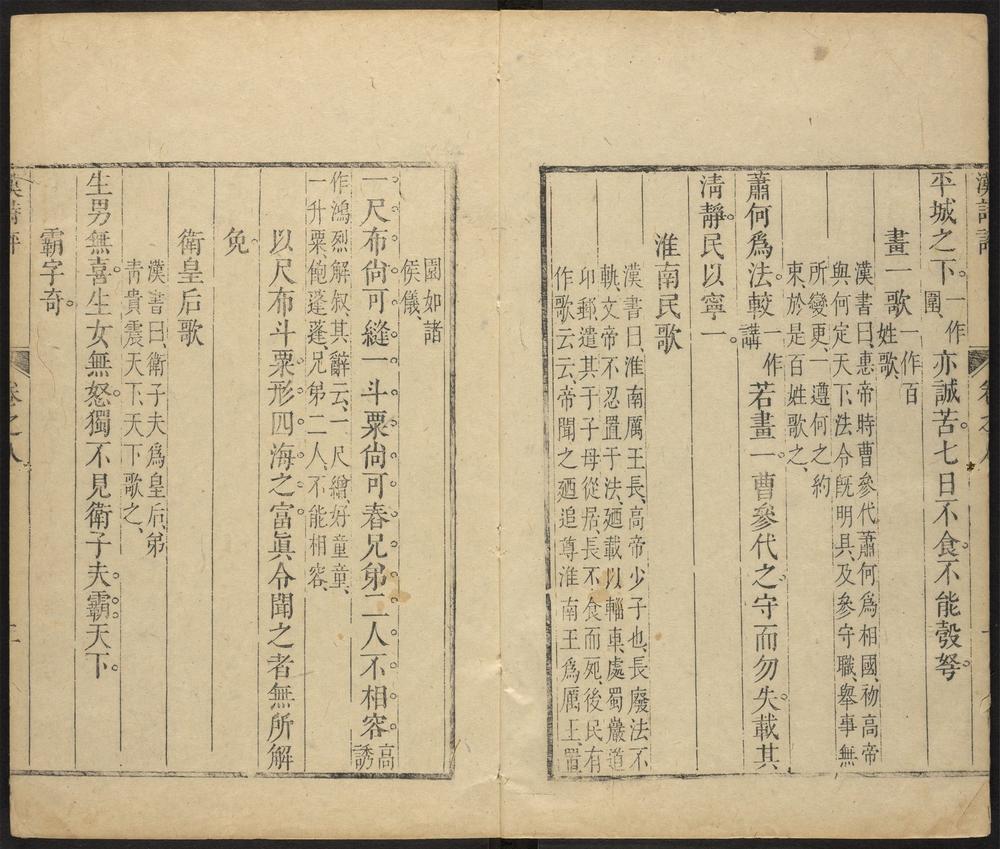 漢詩評 卷之八 一
平城之下。一作圍、亦誠苦。七日不食。不能彀弩。
畫一歌一作百姓歌、
漢書曰、惠帝時曹參代蕭何爲相國、初高帝
與何定天下、法令既明具、及參守職、舉事無
所變更、一遵何之約
束、於是百姓歌之、
蕭何爲法。較一作講、若畫一。曹參代之。守而勿失。載其
淸靜。民以寧一。
淮南民歌
漢書曰、淮南厲王長、高帝少子也、長廢法不
軌、文帝不忍置于法、廼載以輜車、處蜀嚴道
卭郵、遣其子、子母從居、長不食而死、後民有
作歌云云、帝聞之廼追尊淮南王爲厲王、置
園如諸
侯儀、
一尺布。尙可縫。一斗粟。尙可舂。兄弟二人。不相容。高誘
作鴻烈解叙、其辭云、一尺繒、好童童、
一升粟、飽蓬蓬、兄弟二人、不能相容、
以尺布斗粟。形四海之富。眞令聞之者無所解
免
衛皇后歌
漢書曰、衛子夫爲皇后、弟
靑貴震天下、天下歌之、
生男無喜。生女無怒。獨不見衛子夫。霸天下。
霸字奇。
漢詩評 卷之八 二